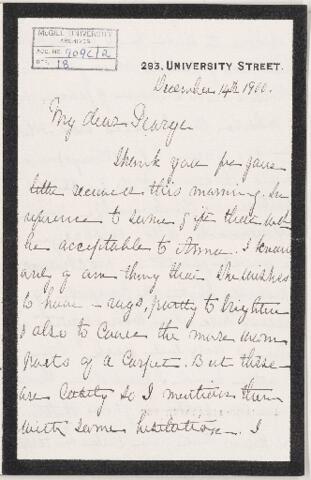 McGILL UNIVERSITY
ARCHIVES
ACC. NO. 909C/2
REF. 18
293, UNIVERSITY STREET.
December 14th 1900.
My dear George
Thank you for your
letter received this morning. In
reference to some gift that will
be acceptable to Anna. I know
are of any thing that she wishes
to have - rugs, partly to brighten
& also to cover the more worn
parts of a carpet. But these
are costly so I mention them
with some hesitation. I